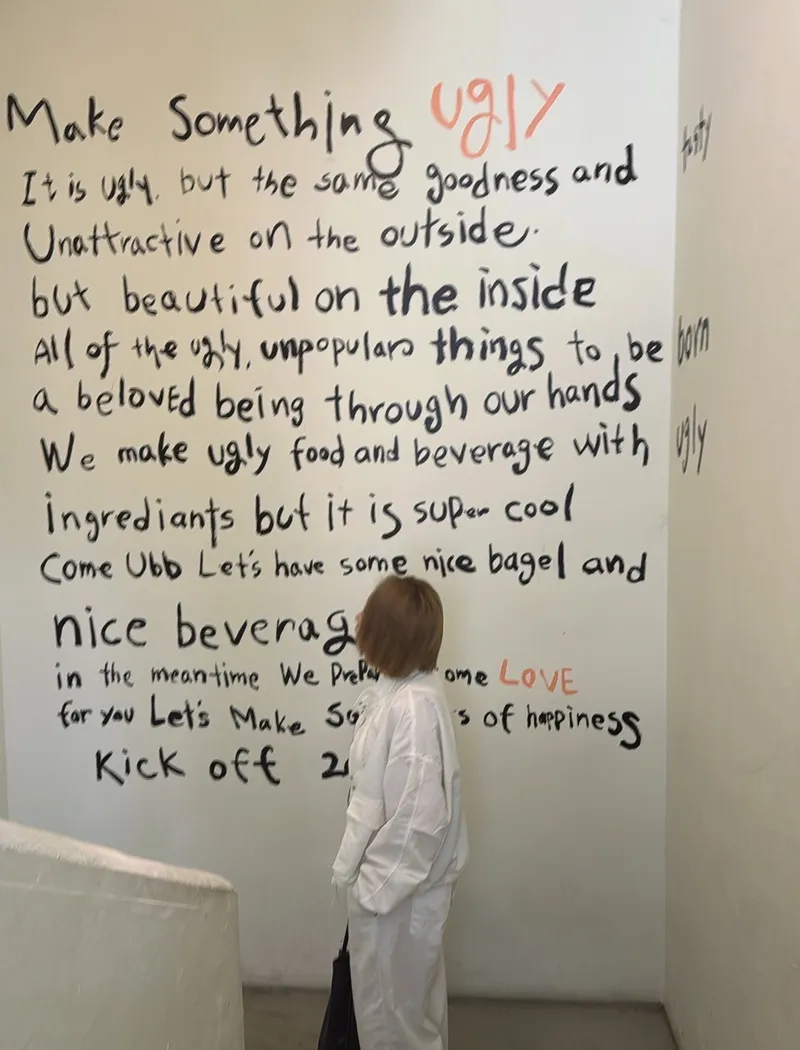 Make Something ugly
It is ugly. but the same goodness and
Unattractive on the outside.
but beautiful on the inside
All of the ugly, unpopular things to be
a beloved being through our hands
We make ugly food and beverage with
ingrediants but it is super cool
Come Ubb Let's have some nice bagel and
nice
in the meantime We LOVE
for you Let's Make of happiness
Kick off
born
ugly